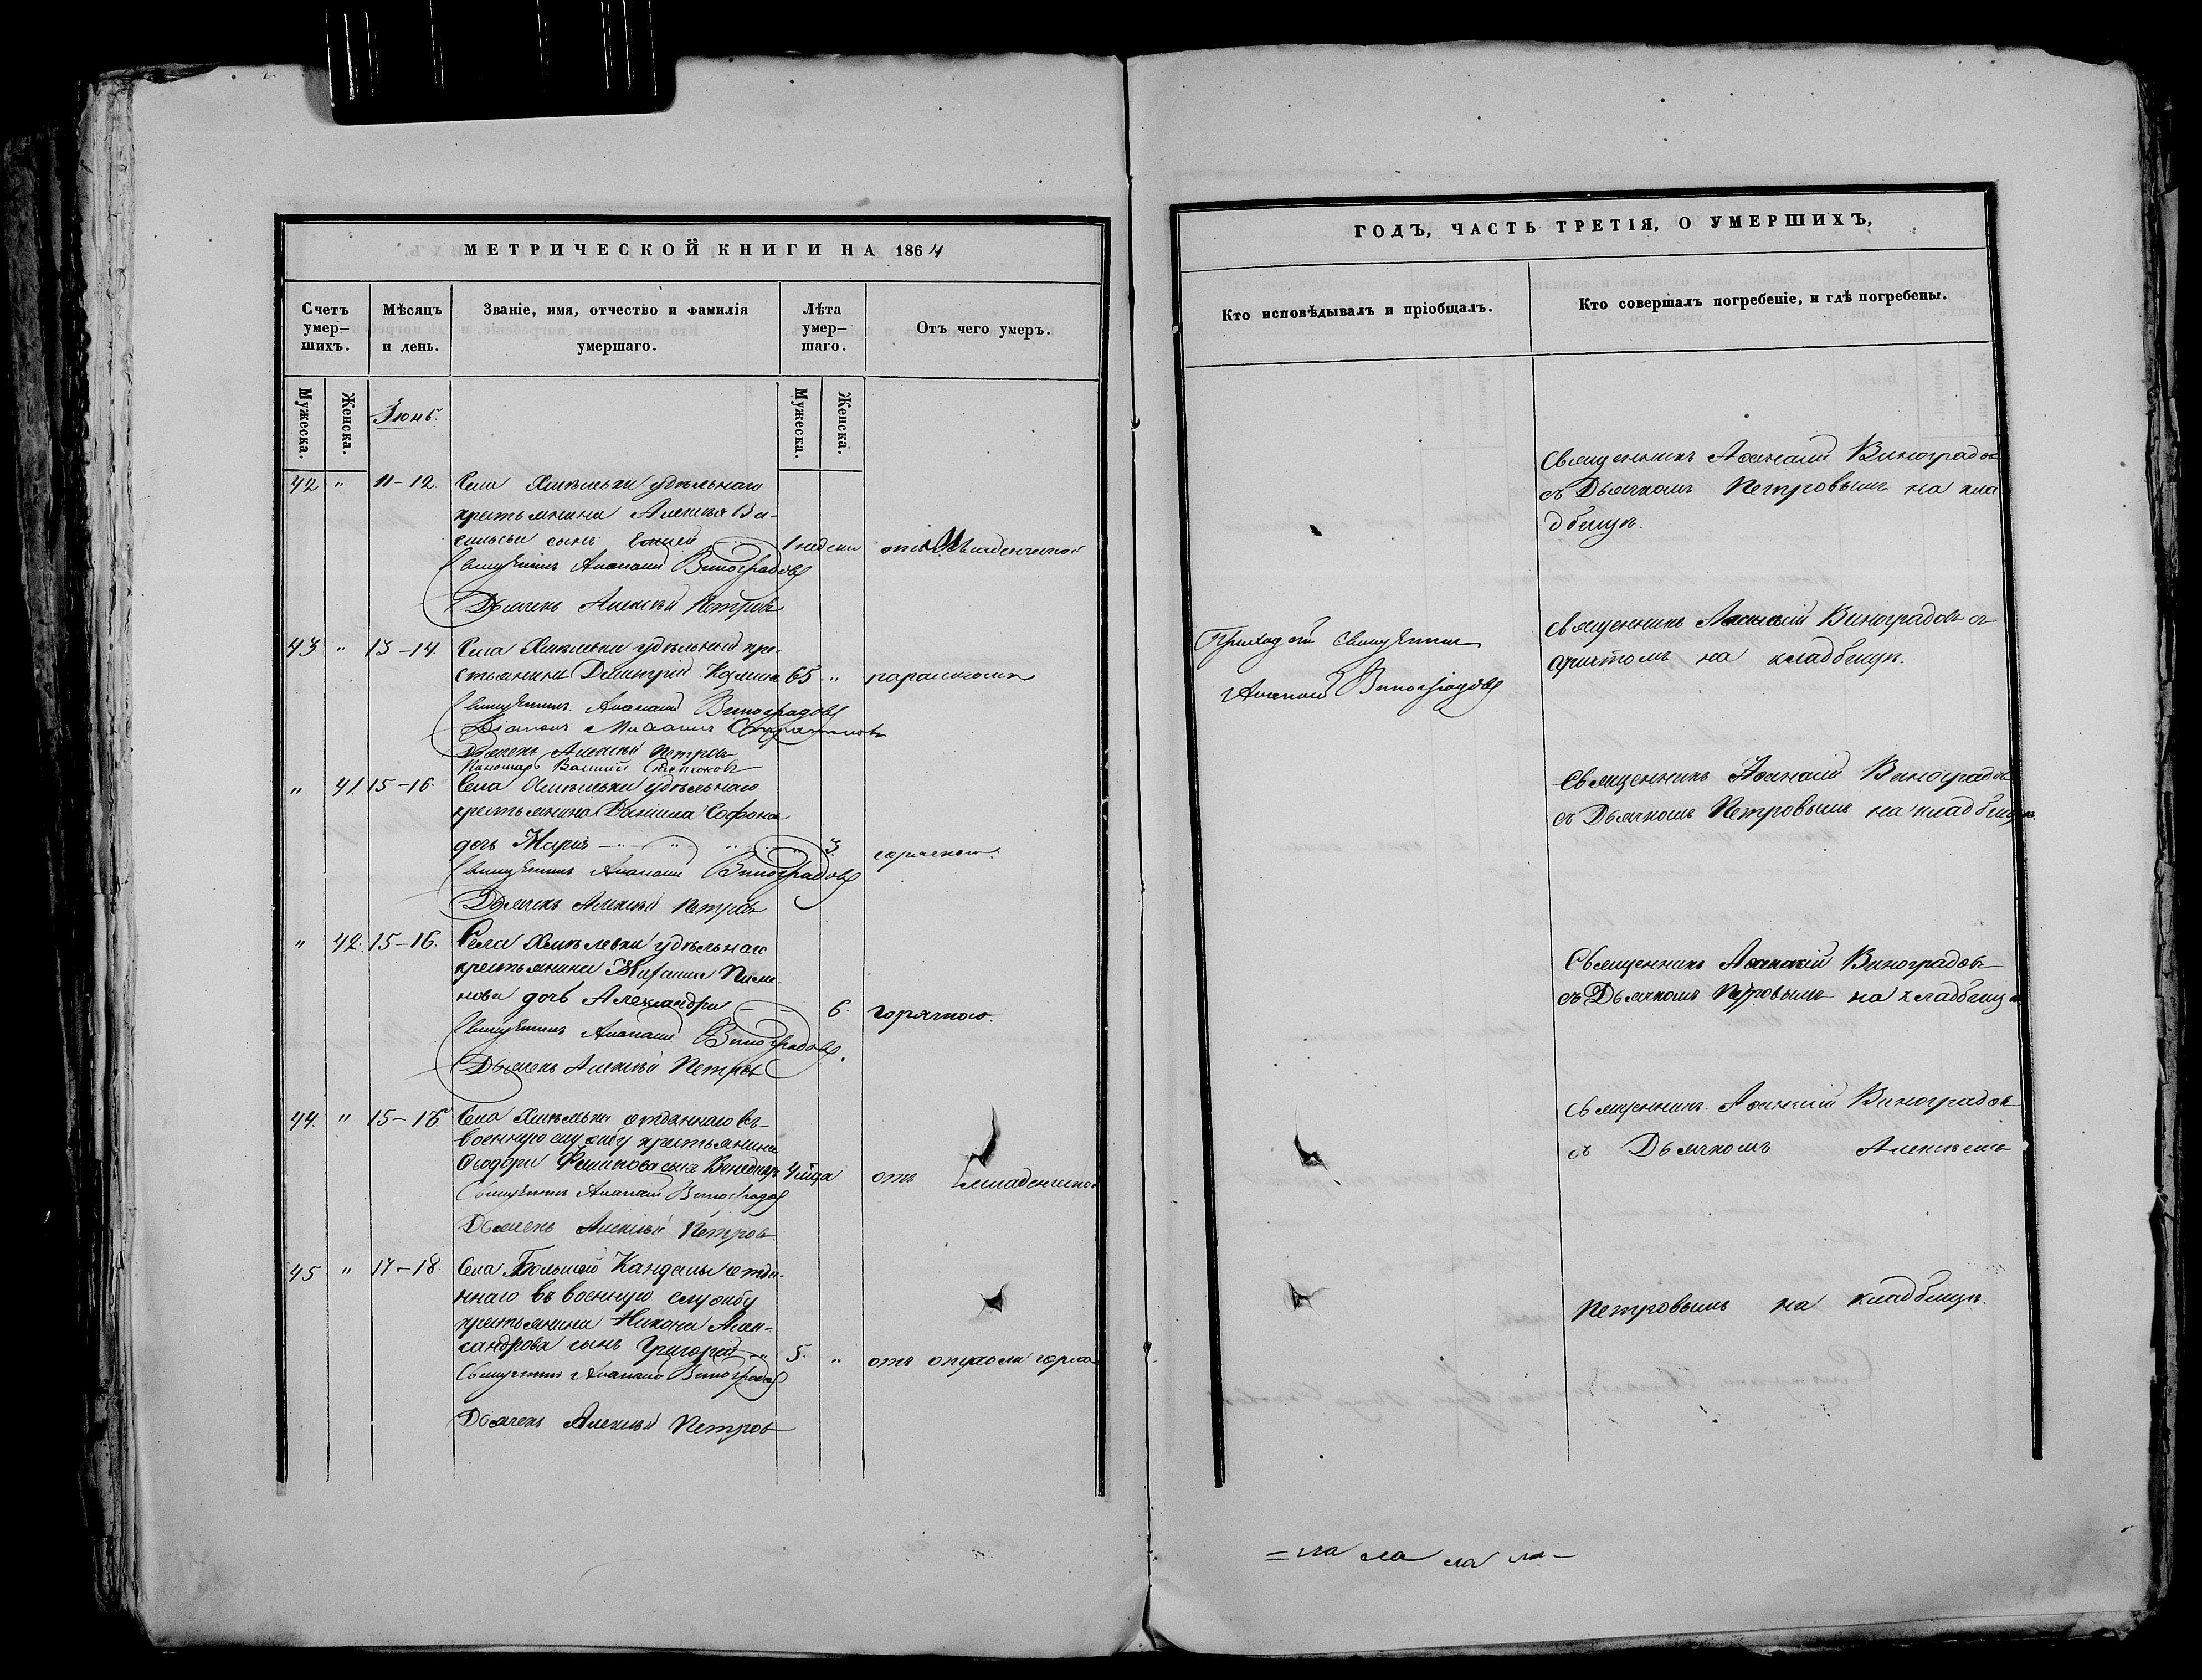 МЕТРИЧЕСКОЙ КНИГИ НА 1864
Счетъ умер-шихъ.
Мѣсяцъ и день.
Званіе, имя, отчество и фамилія умершаго.
Лѣта умер-шаго.
Отъ чего умеръ.
Мужеска.
Женска.
Мужеска.
Женска.
Іюнь.
42 " 11-12. Села удѣльнаго
крестьянина Алексѣя Ва-
сильева сынъ 1 недели отъ младенческой
Священникъ Аѳанасій Виноградовъ
Дьячекъ Алексѣй Петровъ
43 " 13-14. Села удѣльный кре-
стьянинъ Димитрій 65 " параличомъ
Священникъ Аѳанасій Виноградовъ
Діаконъ Михаилъ
Дьячекъ Алексѣй Петровъ
Пономарь Василій Степановъ
" 41. 15-16. Села удѣльнаго
крестьянина Даніила Софонова
дочь Марія 3. горячкою.
Священникъ Аѳанасій Виноградовъ
Дьячекъ Алексѣй Петровъ
" 42. 15-16. Села удѣльнаго
крестьянина Пиме-
нова дочь Александра 6. горячкою.
Священникъ Аѳанасій Виноградовъ
Дьячекъ Алексѣй Петровъ
44. " 15-16 Села отданнаго въ
военную службу крестьянина
Ѳеодора Филипова сынъ 4 м̃ца отъ младенческой
Священникъ Аѳанасій Виноградовъ
Дьячекъ Алексѣй Петровъ
45 " 17-18. Села Большой Кандалы отда-
ннаго въ военную службу
крестьянина Никона Алек-
сандрова сынъ Григорій 5. " отъ опухоли горла
Священникъ Аѳанасій Виноградовъ
Дьячекъ Алексѣй Петровъ
ГОДЪ, ЧАСТЬ ТРЕТІЯ, О УМЕРШИХЪ,
Кто исповѣдывалъ и пріобщалъ.
Кто совершалъ погребеніе, и гдѣ погребены.
Священникъ Аѳанасій Виноградовъ
съ Дьячкомъ Петровымъ на кла
дбищѣ.
Приход от священник
Аѳанасій Виноградовъ
Священникъ Аѳанасій Виноградовъ съ
причтомъ на кладбищѣ.
Священникъ Аѳанасій Виноградовъ
съ Дьячкомъ Петровымъ на кладбищѣ.
Священникъ Аѳанасій Виноградовъ
съ Дьячкомъ Петровымъ на кладбищѣ
Священникъ Аѳанасій Виноградовъ
съ Дьячкомъ Алексѣемъ
Петровымъ на кладбищѣ.
= ла ла ла ла -